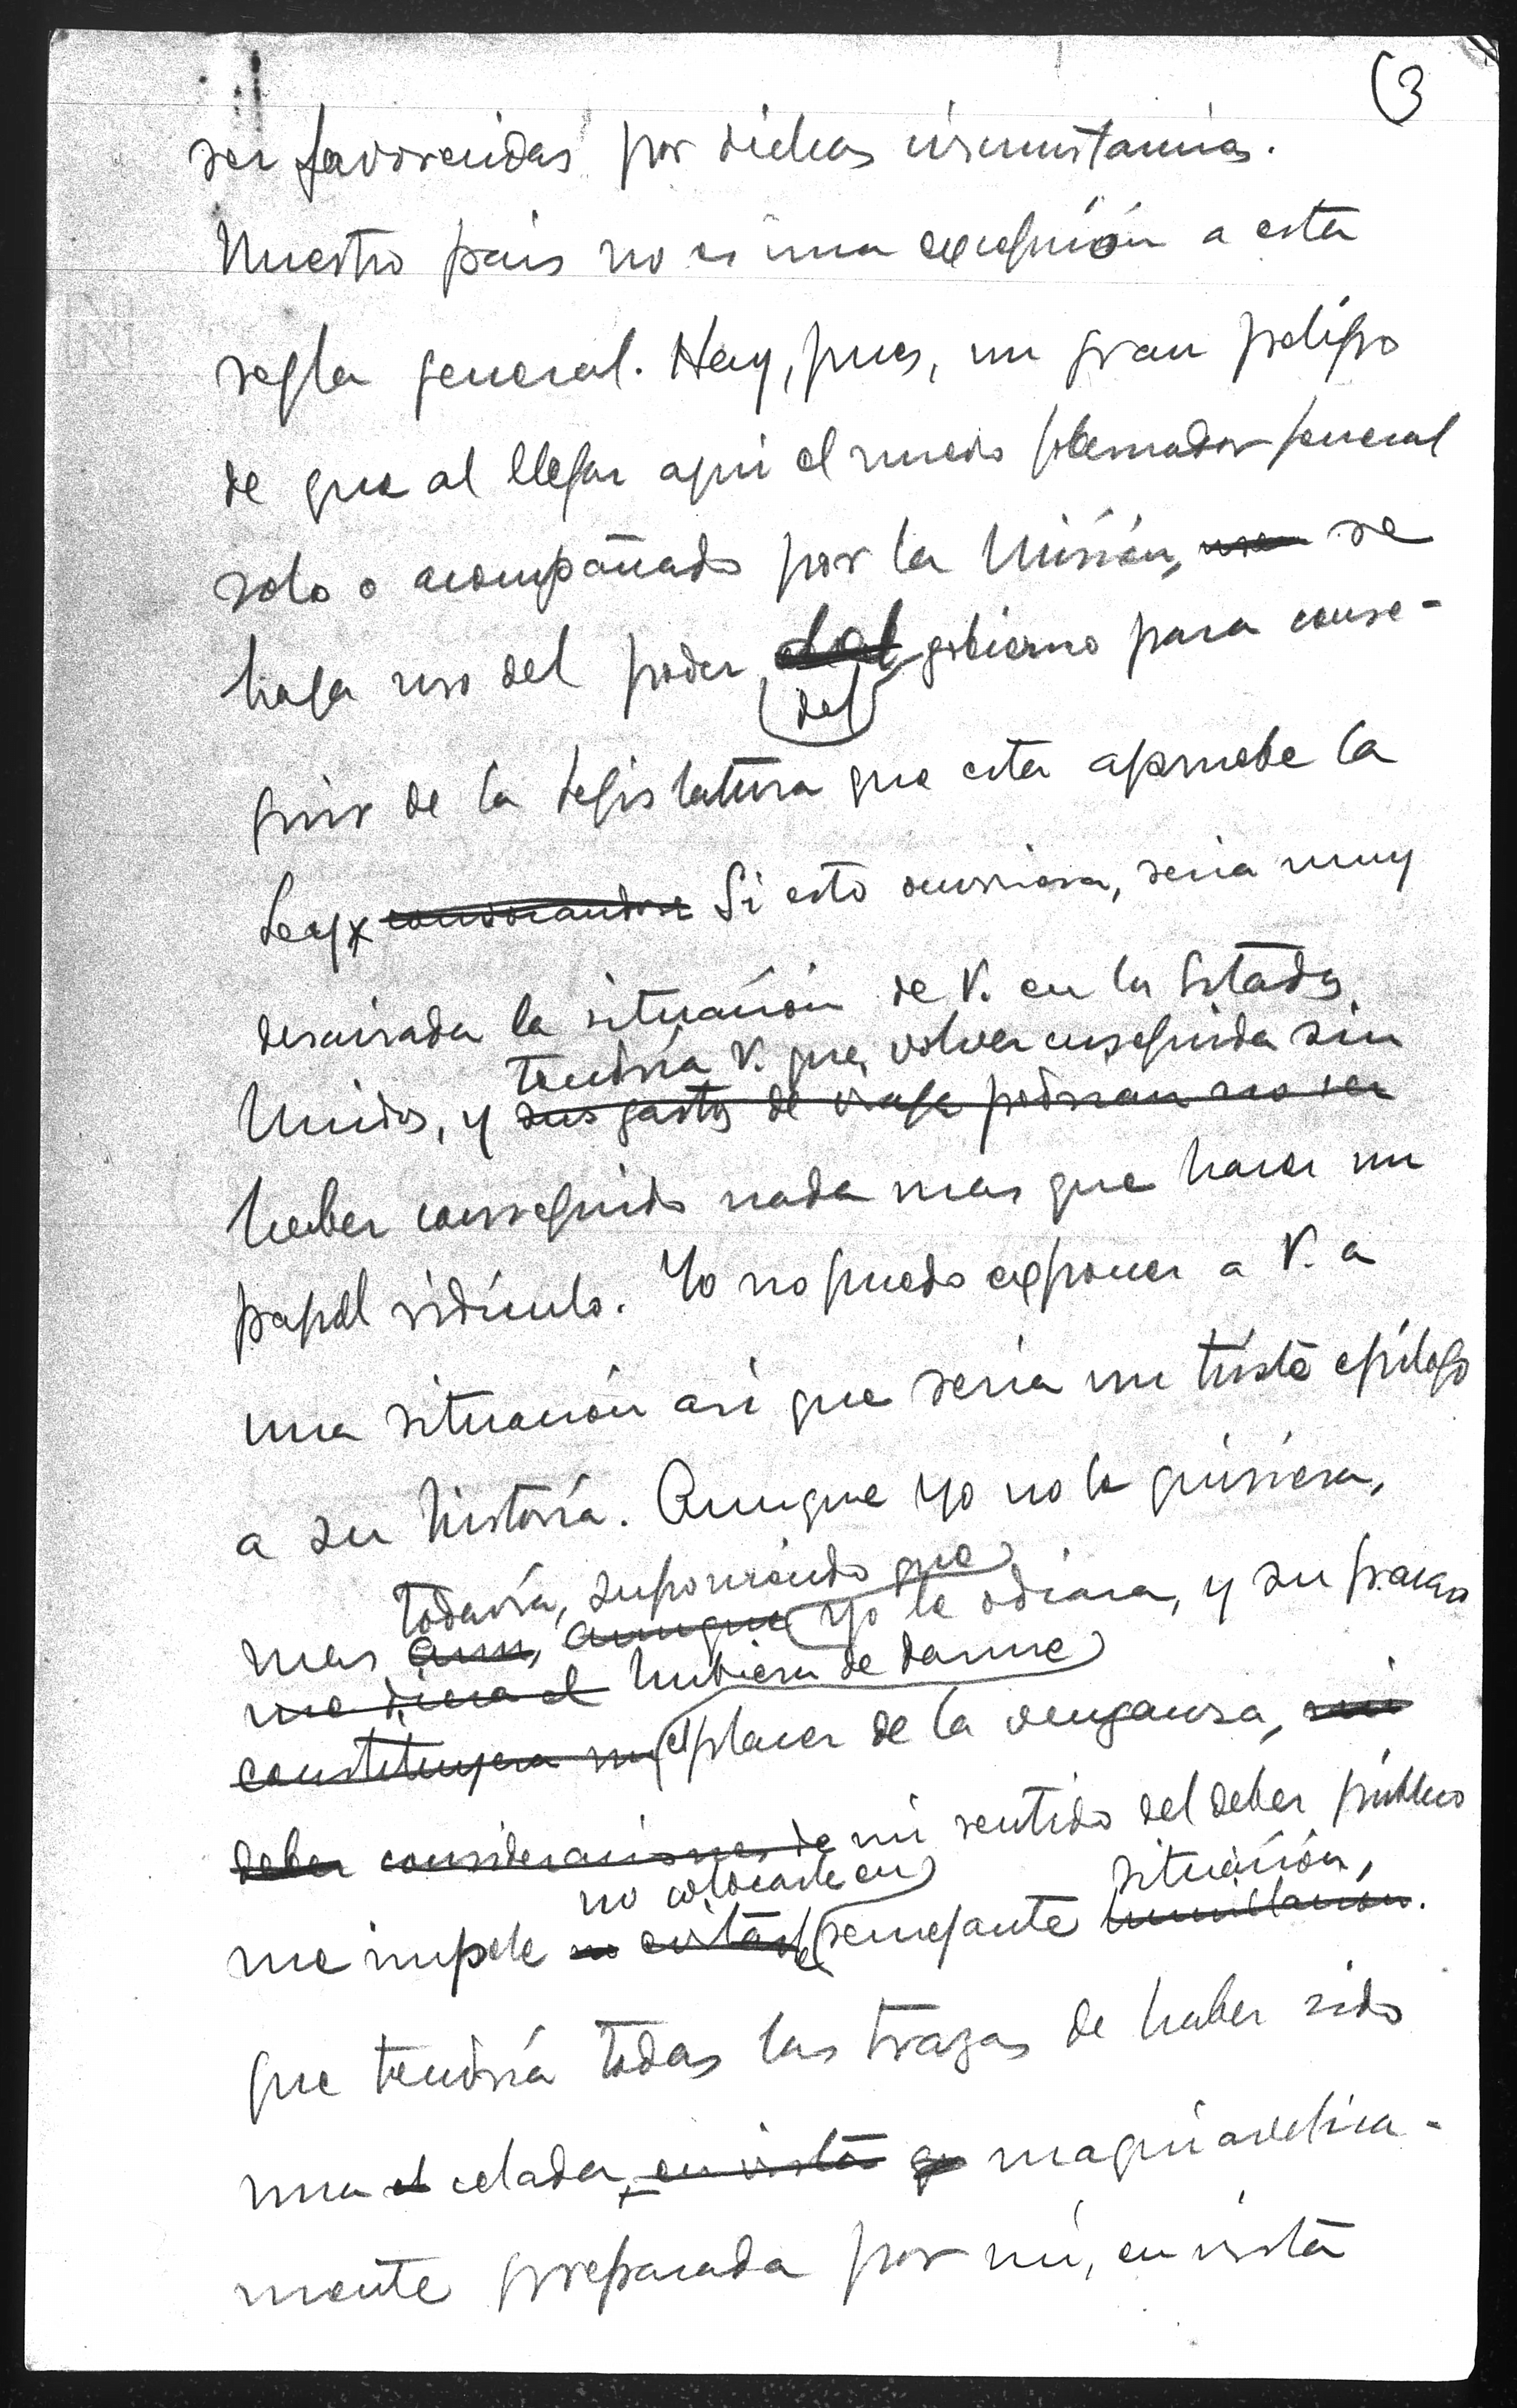 (3
ser favorecidas por dichas circunstancias.
Nuestro pais no es una excepción a esta
regla general. Hay, pues, un gran peligro
de que al llegar aqui el nuevo gobernador general
solo o acompañado por la Misión, se
haga uso del poder del gobierno para conse-
guir de la Legislatura que esta apruebe la
Ley. Si esto ocurriera, seria muy
desairada la situación de V. en los Estados
tendría V. que volver enseguida sin
Unidos, y sus gastos de viaje podrian no ser
haber conseguido nada mas que hacer un
papel ridículo. Yo no puedo exponer a V. a
una situación asi que seria un triste epílogo
a su historia. Aunque yo no le quisiera,
todavía, suponiendo que
mas aun, aunque yo le odiara, y su fracaso
me diera el hubiera de darme
constituyera un el placer de la venganza, mi
deber consideraciones de mi sentido del deber público
no colocarle en situación,
me impele no evitarle semejante humillación.
que tendría todas las trazas de haber sido
una el celada, en vista que maquiavélica-
mente preparada por mí, en vista